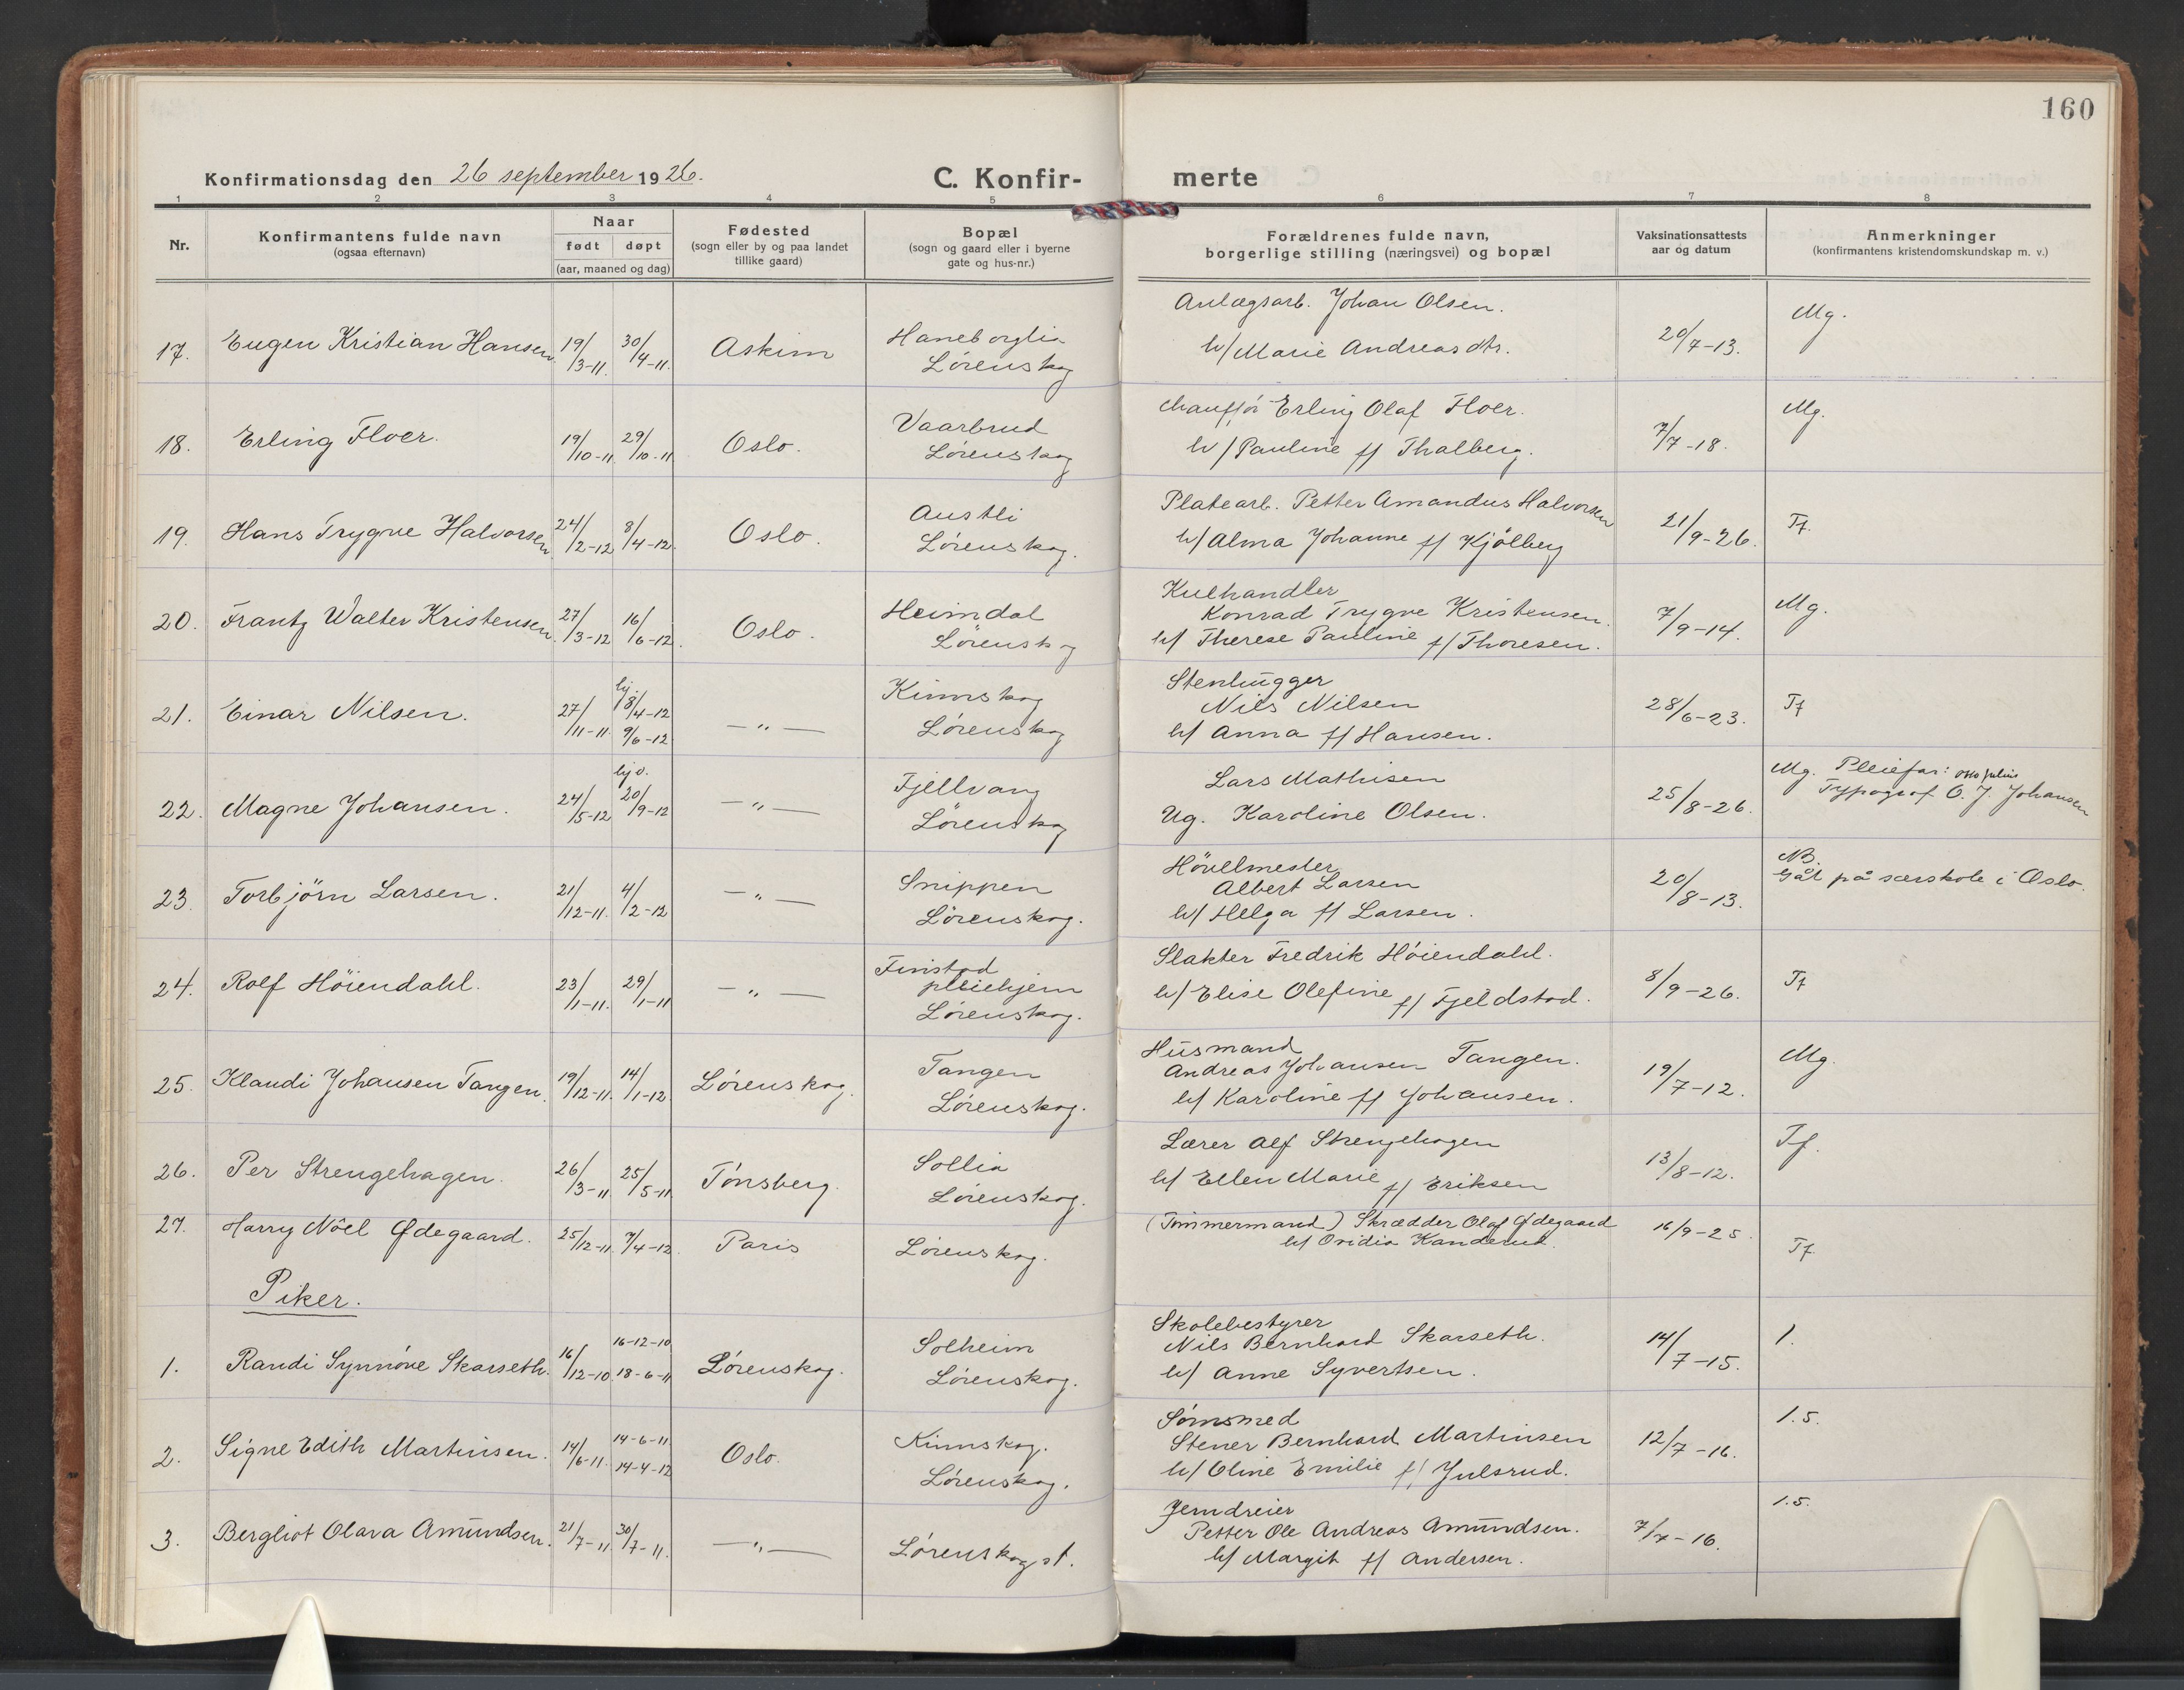 160
Konfirmationsdag den 26 september 1926.
C. Konfir-
merte
1 2 3 4 5 6 7 8
Nr.
Konfirmantens fulde navn
(ogsaa efternavn)
Naar
født døpt
(aar, maaned og dag)
Fødested
(sogn eller by og paa landet
tillike gaard)
Bopæl
(sogn og gaard eller i byerne
gate og hus-nr.)
Forældrenes fulde navn,
borgerlige stilling (næringsvei) og bopæl
Vaksinationsattests
aar og datum
Anmerkninger
(konfirmantens kristendomskundskap m. v.)
17. Eugen Kristian Hansen 19/3-11. 30/4-11. Askim
Haneborglia
Lörenskog
Anlægsarb. Johan Olsen.
h/ Marie Andreasdtr.
20/7-13.
Mg.
18. Erling Floer. 19/10-11 29/10-11 Oslo.
Vaarbrud
Lörenskog
chaufför Erling Olaf Floer.
h/ Pauline f/ Thalberg.
7/7-18.
Mg.
19. Hans Trygve Halvorsen 24/2-12 8/4-12. Oslo.
Austli
Lörenskog.
Platearb. Petter Amandus Halvorsen
h/ Alma Johanne f/ Kjölberg
21/9-26.
Tf.
20. Frantz Walter Kristensen. 27/3-12 16/6-12. Oslo.
Heimdal
Lörenskog
Kulhandler
Konrad Trygve Kristensen.
h/ Therese Pauline f/ Thoresen.
7/9-14.
Mg.
21. Einar Nilsen. 27/11-11.
hj. 8/4-12
9/6-12
— " —
Kinnskog
Lörenskog
Stenhugger
Nils Nilsen
h/ Anna f/ Hansen.
28/6-23.
Tf
22. Magne Johansen. 24/5-12
hjd.
20/9-12
— " —
Fjellvang
Lörenskog
Lars Mathisen
Ug. Karoline Olsen.
25/8-26.
Mg. Pleiefar:
Typograf O. J. Johansen
23. Torbjörn Larsen. 21/12-11. 4/2-12
— " —
Snippen
Lörenskog.
Hövellmester
Albert Larsen
h/ Helga f/ Larsen.
20/8-13.
NB.
Gåt på særskole i Oslo.
24. Rolf Höiendahl. 23/1-11. 29/1-11
— " —
Finstad
pleiehjem
Lörenskog.
Slakter Fredrik Höiendahl.
h/ Elise Olefine f/ Fjeldstad.
8/9-26.
Tf
25. Klaudi Johansen Tangen. 19/12-11. 14/1-12. Lörenskog.
Tangen
Lörenskog.
Husmand
Andreas Johansen Tangen.
h/ Karoline f/ Johansen.
19/7-12.
Mg.
26. Per Strengehagen. 26/3-11 25/5-11. Tönsberg.
Sollia
Lörenskog.
Lærer Alf Strengehagen
h/ Ellen Marie f/ Eriksen
13/8-12.
Tf.
27. Harry Nöel Ødegaard. 25/12-11. 7/4-12. Paris
Lörenskog.
(Tømmermand) Skrædder Olaf Ødegaard
h/ Ovidia Kanderud.
16/9-25.
Tf
Piker.
1. Randi Synnöve Skarseth. 16/12-10
16-12-10
18-6-11
Lörenskog.
Solheim
Lörenskog.
Skolebestyrer
Nils Bernhard Skarseth.
h/ Anne Syvertsen.
14/7-15.
1.
2. Signe Edith Martinsen. 14/6-11.
14-6-11.
14-4-12
Oslo.
Kinnskog.
Lörenskog.
Sömsmed
Stener Bernhard Martinsen
h/ Oline Emilie f/ Julsrud.
12/7-16.
1.5.
3. Bergliot Olava Amundsen. 21/7-11 30/7-11.
— " —
Lörenskog st.
Jerndreier
Petter Ole Andreas Amundsen.
h/ Margit f/ Andersen.
7/7-16.
1.5.